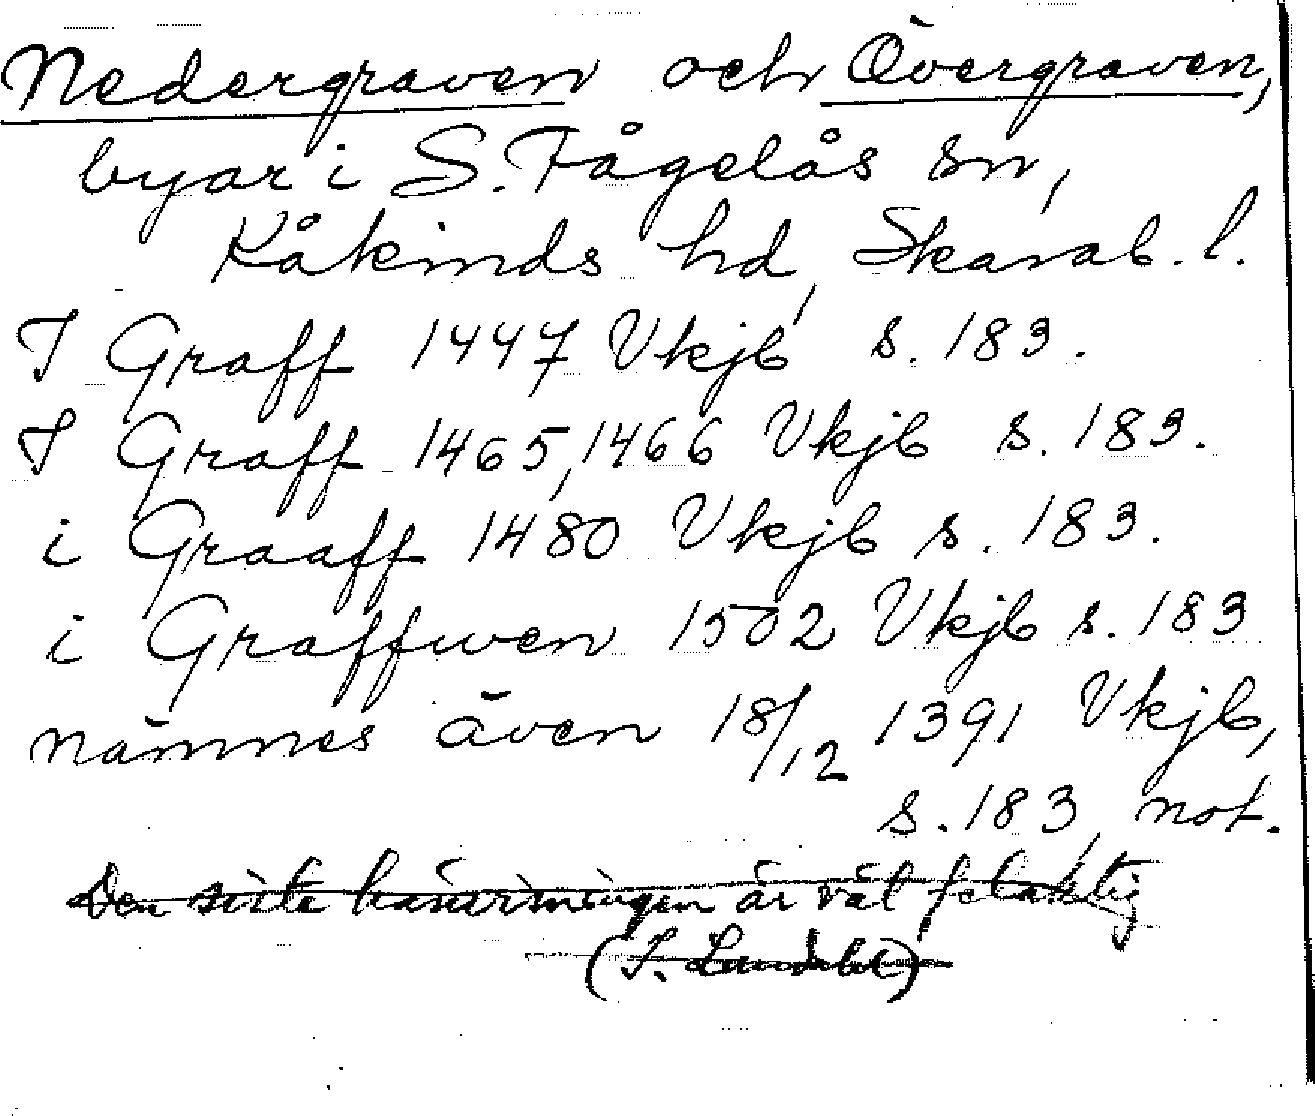 Nedergraven och Övergraven,
byar i S. Fågelås sn,
Kåkinds hd, Skarab. l.
I Graff 1447 Vkjb s. 183.
I Graff 1465, 1466 Vkjb s. 183.
i Graaff 1480 Vkjb s. 183.
i Graffwen 1502 Vkjb s. 183
nämnes även 18/12 1391 Vkjb,
s. 183, not.
Den sista hänvisningen är väl felaktig